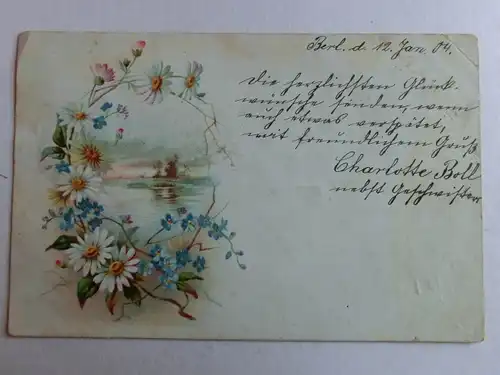 Berl. d. 12. Jan. 04.
Die herzlichsten Glück-
wünsche senden, wenn
auch etwas verspätet,
mit freundlichem Gruß
Charlotte Boll
nebst Geschwister